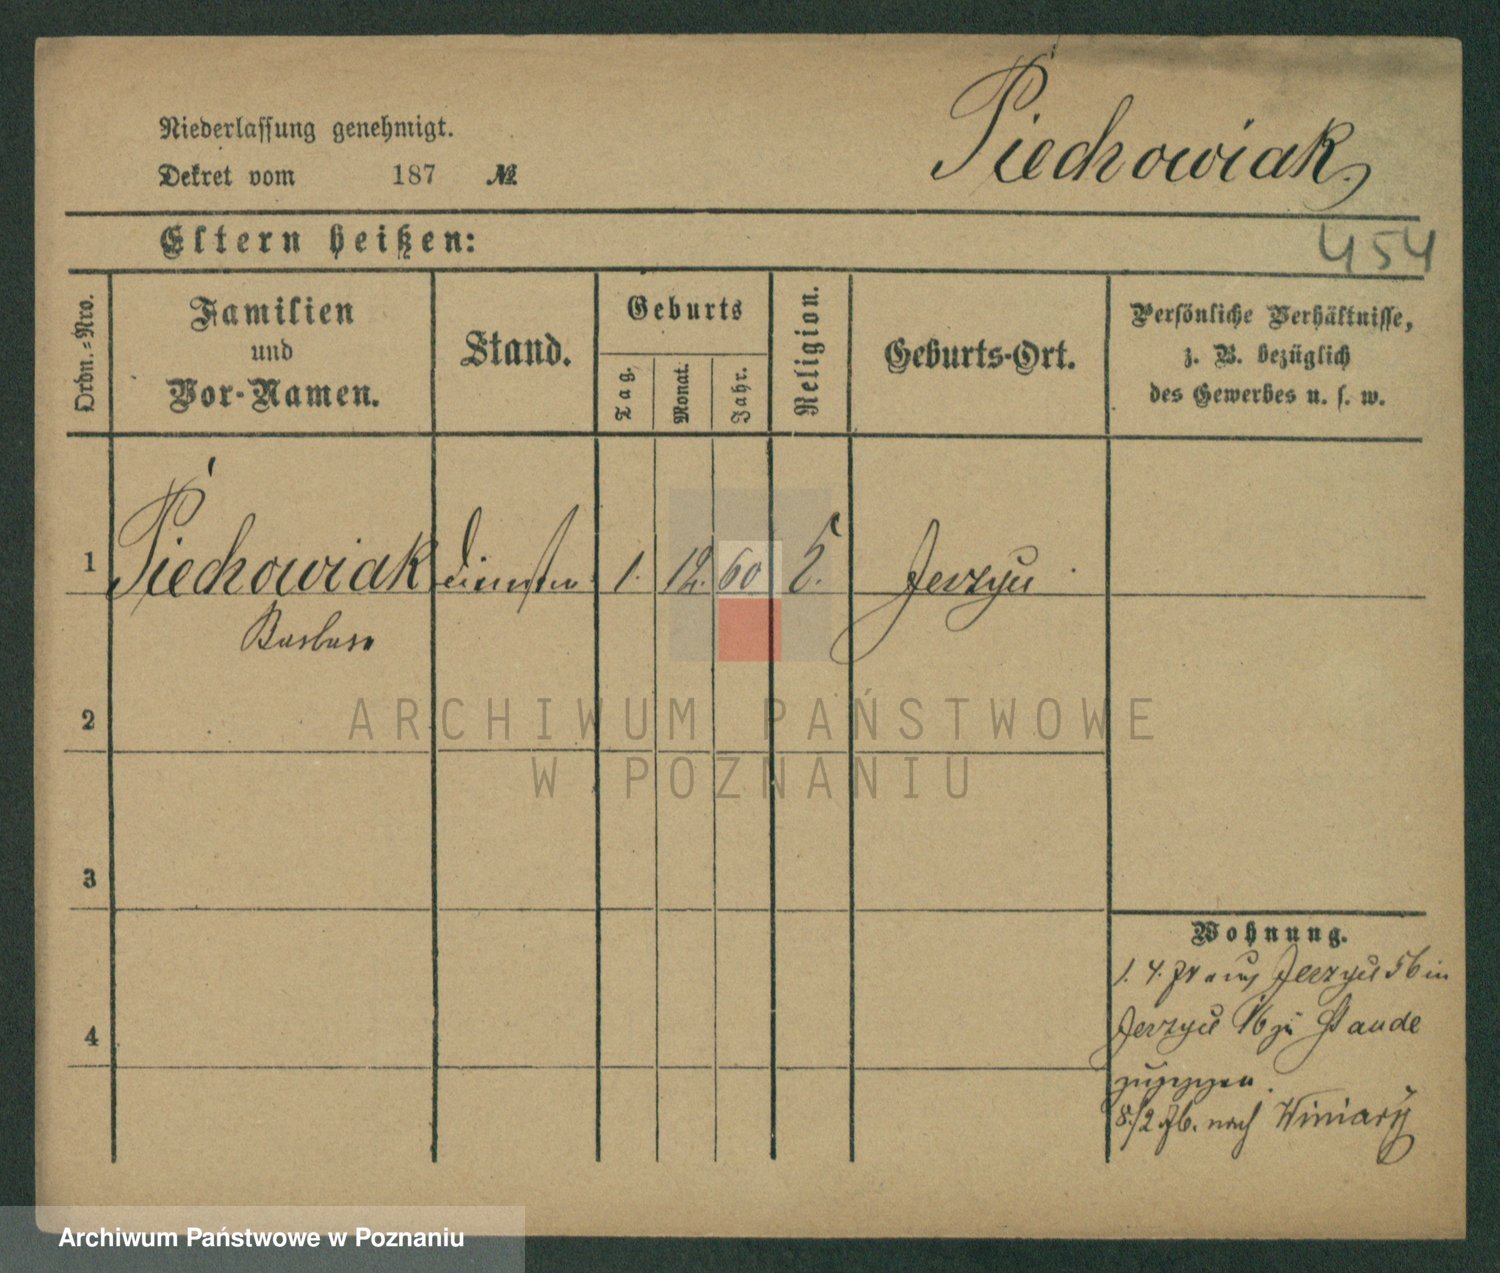 Piechowiak.
Niederlassung genehmigt.
Dekret vom 187 №
454
Eltern heißen:
Ordn.-Nro.
Familien
und
Vor-Namen.
Stand.
Geburts
Tag.
Monat.
Jahr.
Religion.
Geburts-Ort.
Persönliche Verhältnisse,
z. B. bezüglich
des Gewerbes u. s. w.
1 Piechowiak 1. 12. 60 Jerzyce
Barbara
2
3
4
Wohnung.
1. 4. aus Jerzyce 56 in
Jerzyce 16 zu Staude
zugezogen.
8/2 nach Winiary
ARCHIWUM PAŃSTWOWE
W POZNANIU
Archiwum Państwowe w Poznaniu